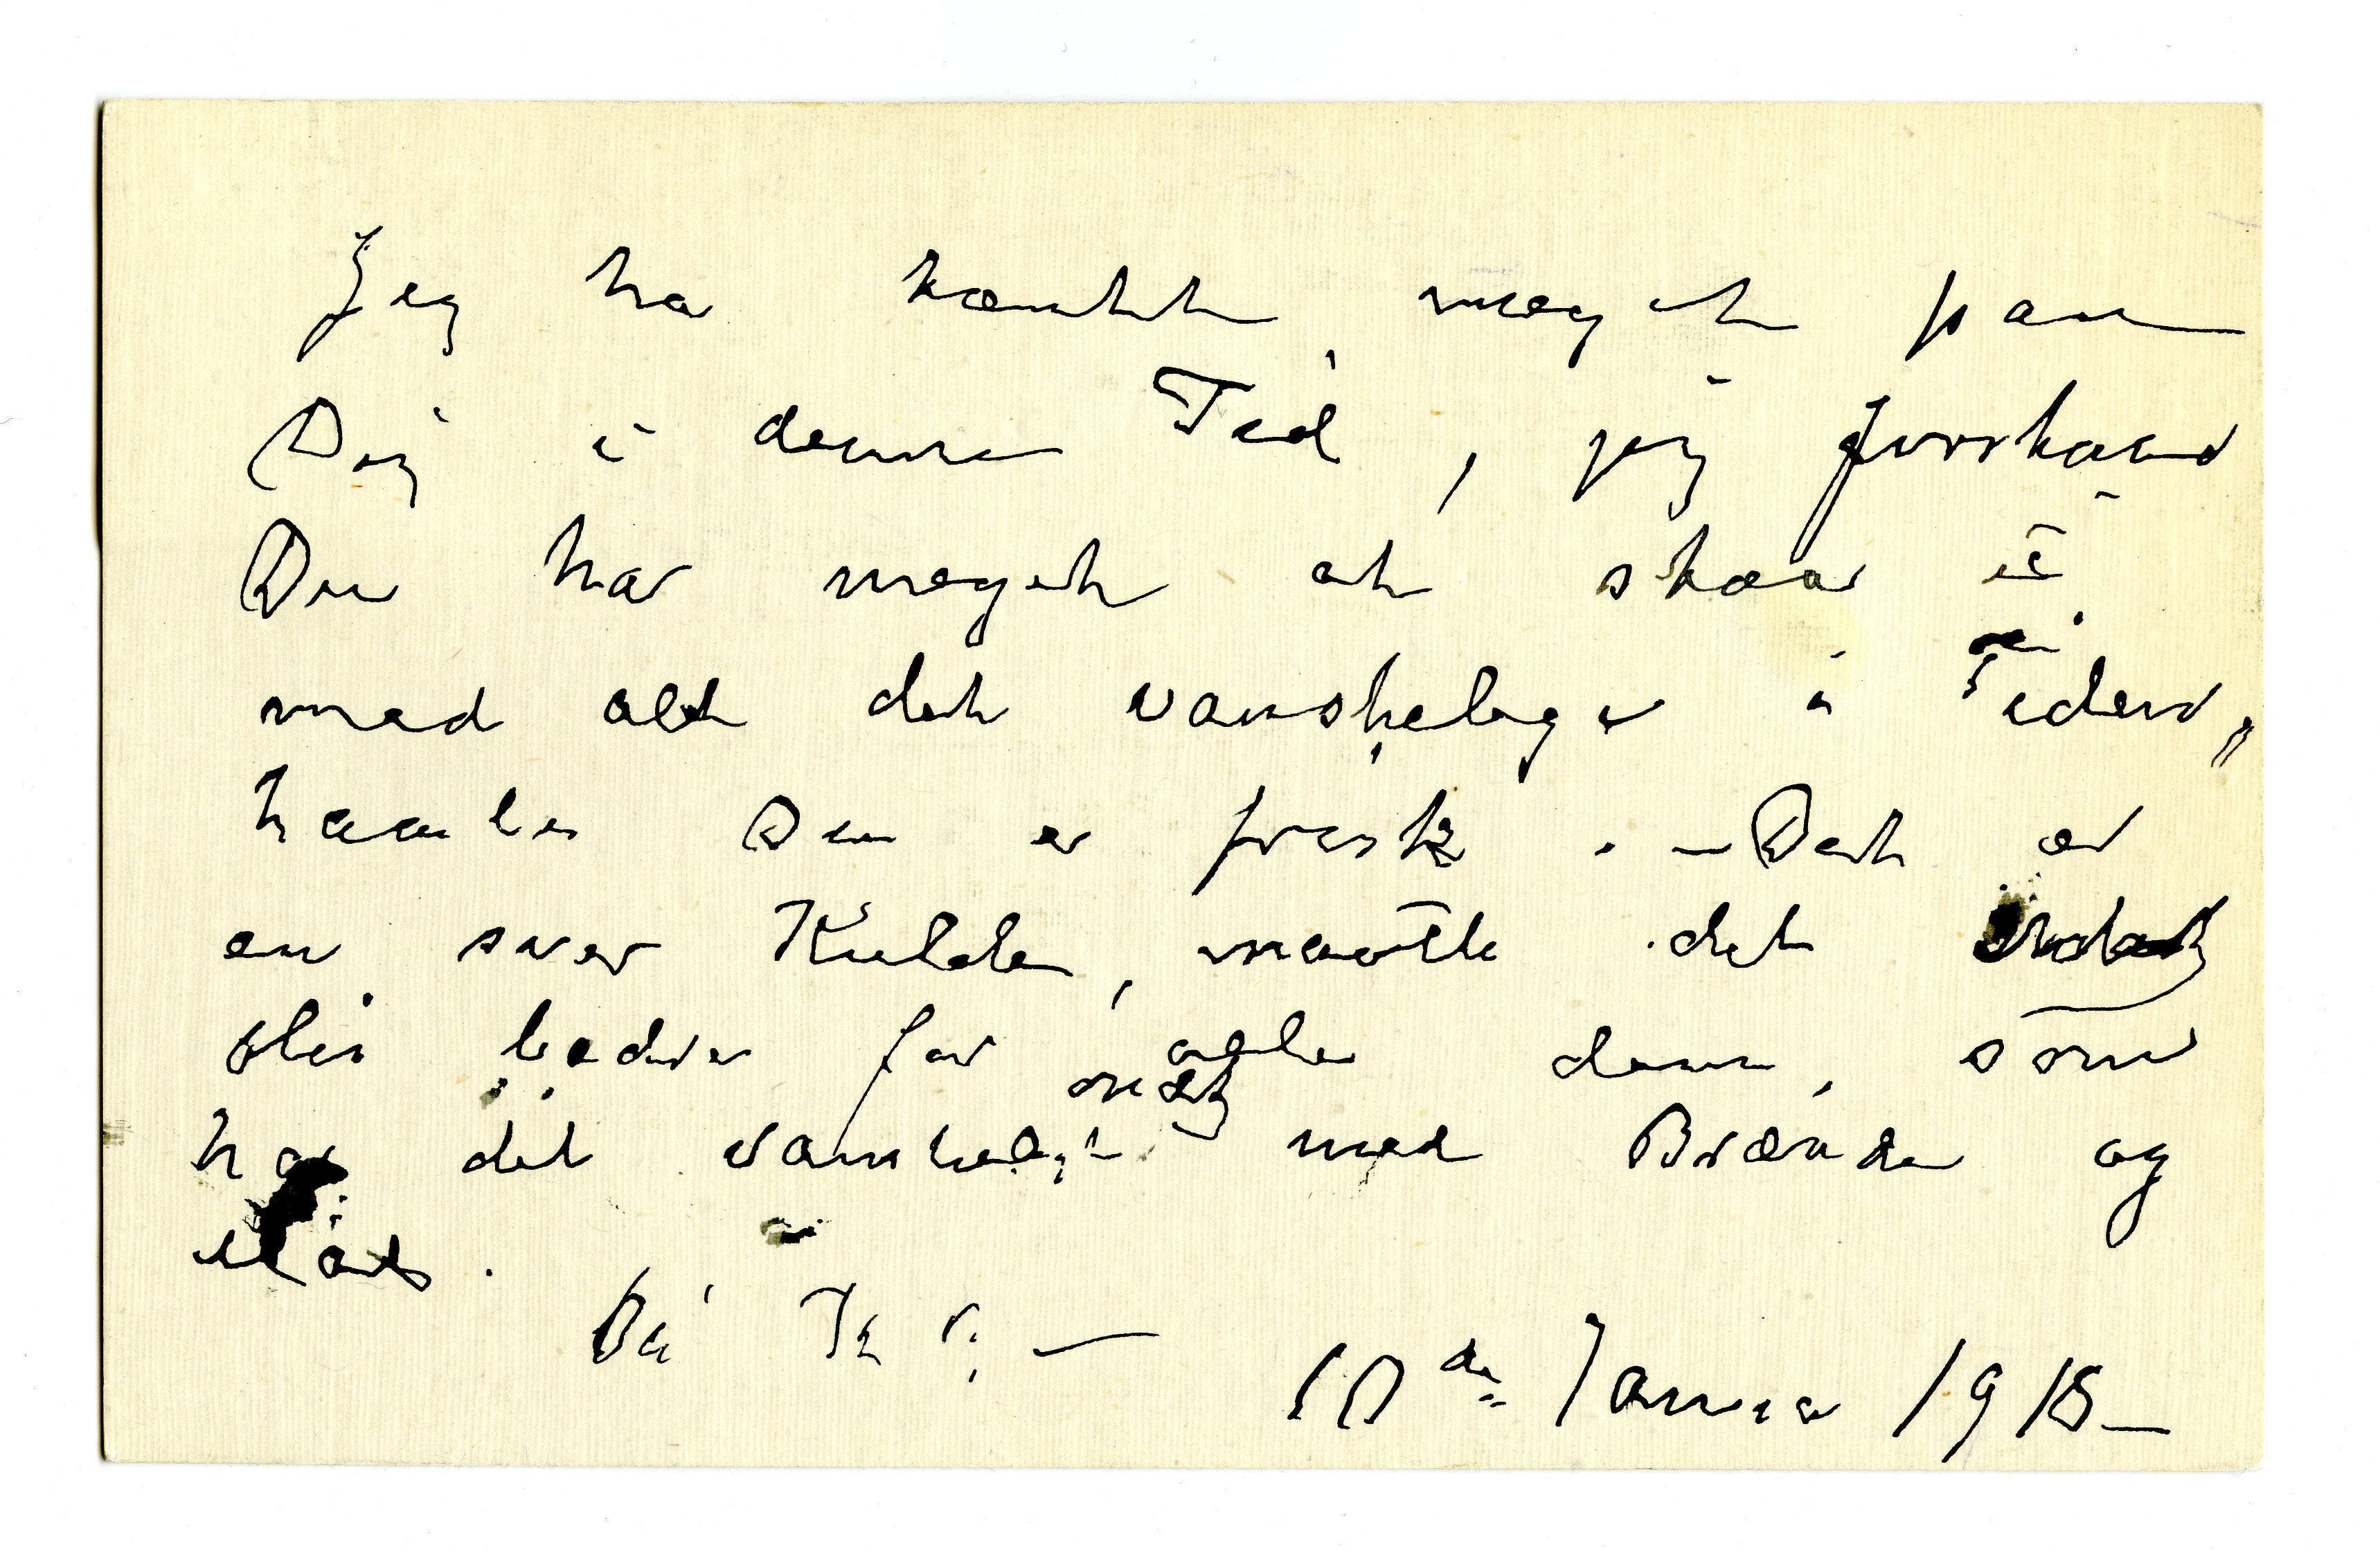 Jeg har tænkt meget paa
Dig i denne Tid, jeg forstaar
Du har meget at staa i
med alt det vanskelige i Tiden,
haaber Du er frisk. – Det er
en svær Kulde, maatte det
bli bedre for alle dem, som
har det vanskeligt med Brænde og
10de Januar 1918